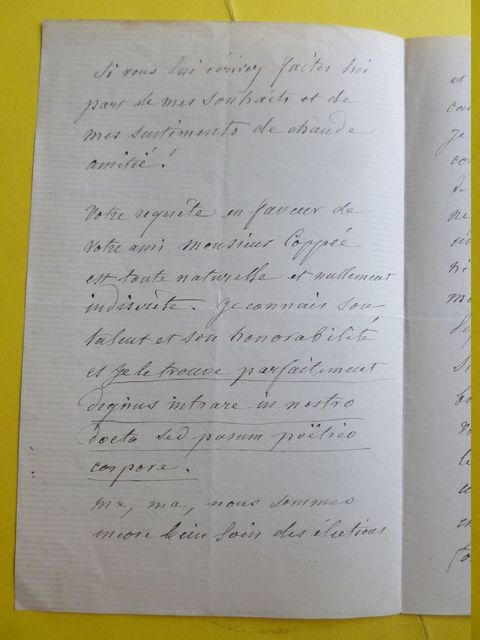 Si vous lui écrivez faites lui
part de mes souhaits et de
mes sentiments de chaude
amitié!
Votre requête en faveur de
votre ami Monsieur Coppée
est toute naturelle et nullement
indiscrète. Je connais son
talent et son honorabilité
et je le trouve parfaitement
dignus intrare in nostro
docto sed parum poëtico
corpore.
Ma, ma, nous sommes
encore bien loin des élections
et
Je
de